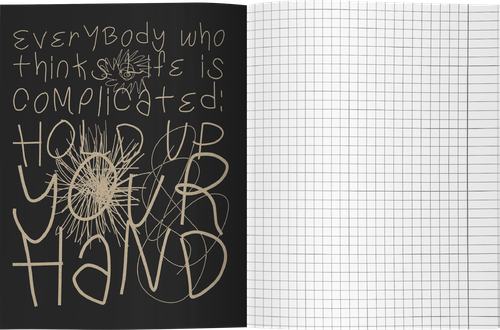 EVERYBODY who
thinks Life is
COMPlicATED!
HOLD UP
YOUR
HaND